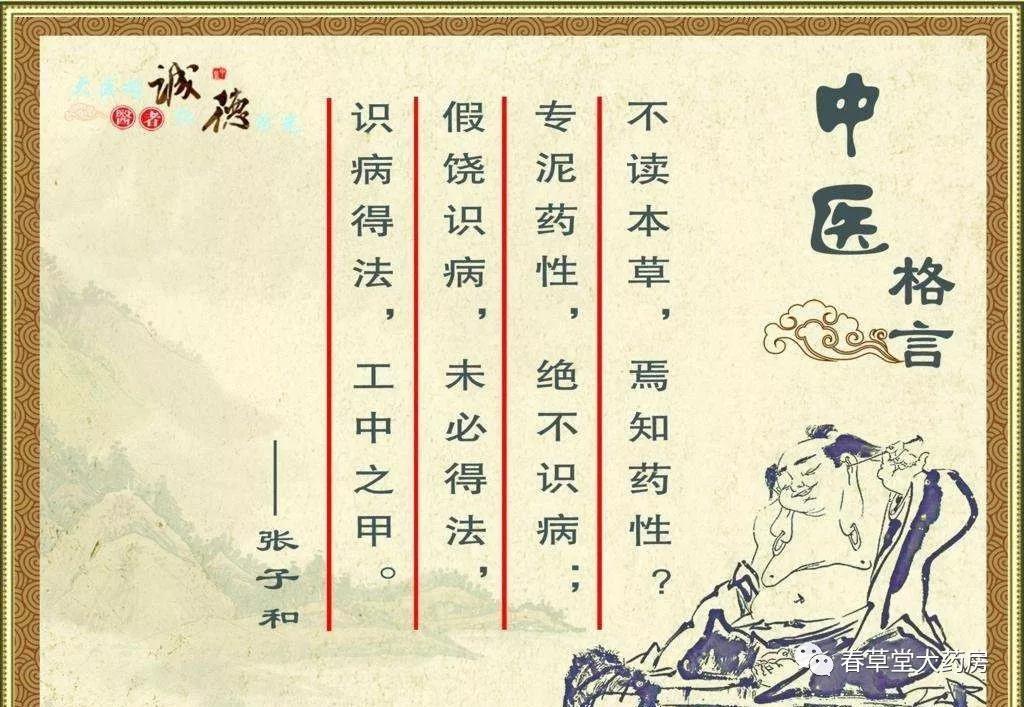 中医
格言
不读本草，焉知药性？
专泥药性，绝不识病；
假饶识病，未必得法，
识病得法，工中之甲。
——张子和
诚
德
醫者
春草堂大药房